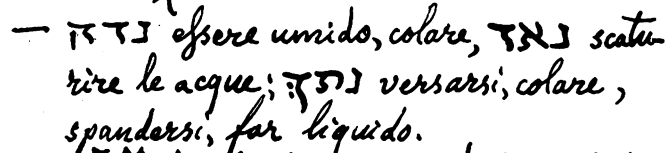 — נדה essere umido, colare, נאד scatu-
rire le acque; נתךְ versarsi, colare,
spandersi, far liquido.